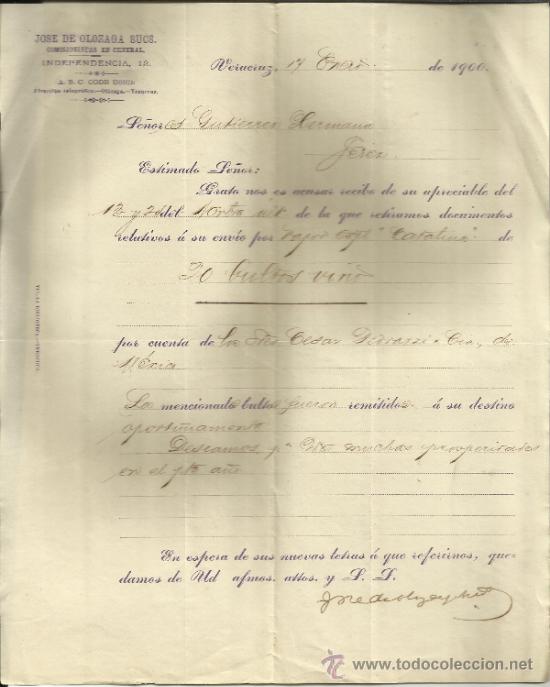 JOSE DE OLOZAGA SUCS.
COMISIONISTAS EN GENERAL,
INDEPENDENCIA, 12.
A. B. C. CODE USED
Dirección telegráfica:—Olózaga.—Veracruz.
Veracruz, 17 Enero de 1900.
Señores Gutierrez Hermano
Jerez
Estimado Señor:
Grato nos es acusar recibo de su apreciable del
12 y 26 del de la que retiramos documentos
relativos á su envío por vapor Espl "Catalina" de
20 bultos vino
por cuenta de los Sres Cesar Pedrazzi & Cia, de
México
Los mencionados bultos fueron remitidos á su destino
oportunamente
Deseamos pa Vds muchas prosperidades
en el pte año
En espera de sus nuevas letras á que referirnos, que-
damos de Ud afmos. attos. y S. S.
www.todocoleccion.net